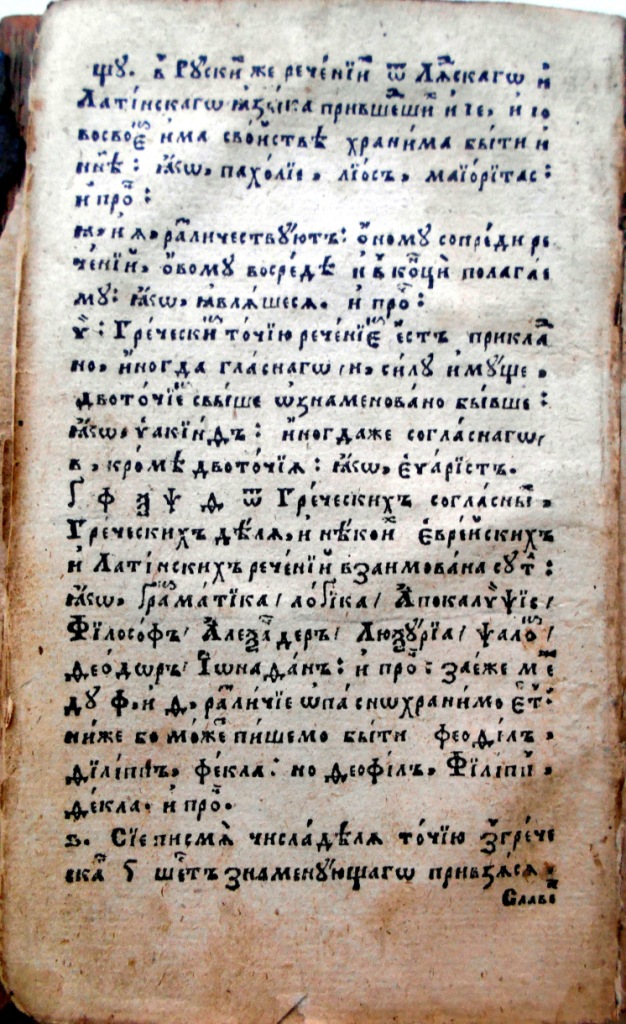 щу. в̾ Рускиⷯ же речéнїиⷯ ѿ Лѧⷣскагѡ и҆
Лати́нскагѡ ꙗ҆зы́ка прившеⷣшиⷯ и҆ іе, и҆ їо
восвоеⷨ и҆ма сво́йствѣ храни́ма бы́ти и҆
ннѣ: ꙗ҆́кѡ, пахо́лїе, лїо́съ, маїо́рїтас:
и҆ проⷱ҇:
ꙗ, и҆ ѧ, раⷥли́чествꙋютъ: ѻ҆́номꙋ сопре́ди ре
че́нїй, ѻ҆́вомꙋ восредѣ̀ и҆ в̾ концѝ полагае
мꙋ: ꙗ҆́кѡ, ꙗ҆вля́шеся. и҆ проⷱ҇:
ѵ҆: Гре́ческиⷯ то́чїю рече́нїеⷨ є҆́стъ приклаⷣ
но, и҆ногда гла́снагѡ, и, си́лꙋ и҆мꙋ́ще,
двото́чїеⷨ свы́ше ѡ҆знаменова́но бы́вше:
ꙗ҆́кѡ, ѵ҆аки́нѳъ: и҆ногдаже согла́снагѡ,
в, кро́мѣ двото́чїя: ꙗ҆́кѡ, є҆ѵа́рїстъ.
Ґ ф ѯ ѱ ѳ ѿ Гре́ческихъ согла́сныⷯ,
Гре́ческихъ дѣ́ля, и҆ нѣ́коиⷯ Є҆вре́йскихъ
и҆ Лати́нскихъ рече́нїй взаимова́на сꙋⷮ:
ꙗ҆́кѡ, Ґрамма́тїка, ло́ґїка, А҆пока́лѵѱїс,
Фїлосо́фъ, А҆леѯа́ндеръ, Люѯꙋ́рїа, ѱало́ⷨ,
Ѳео́дѡръ, І҆ѡнаѳа́нъ: и҆ проⷱ҇: зане́же меⷤ
дꙋ ф, и҆ ѳ, раⷥли́чїе ѡ҆па́снѡ храни́мо є҆́стъ:
ни́же бо мо́жеⷮ пи́шемо бы́ти феоѳі́лъ,
Ѳїлі́ппъ, фе́кла: но Ѳеофі́лъ, Фїлі́ппъ,
Ѳе́кла. и҆ проⷱ҇.
ѕ. Сїе писмѧ̀ числа дѣ́ля то́чїю з̾ гре́че
скаⷢ ϛ ше́стъ знаменꙋ́ющагѡ привзѧ́ся.
Славеⷩ